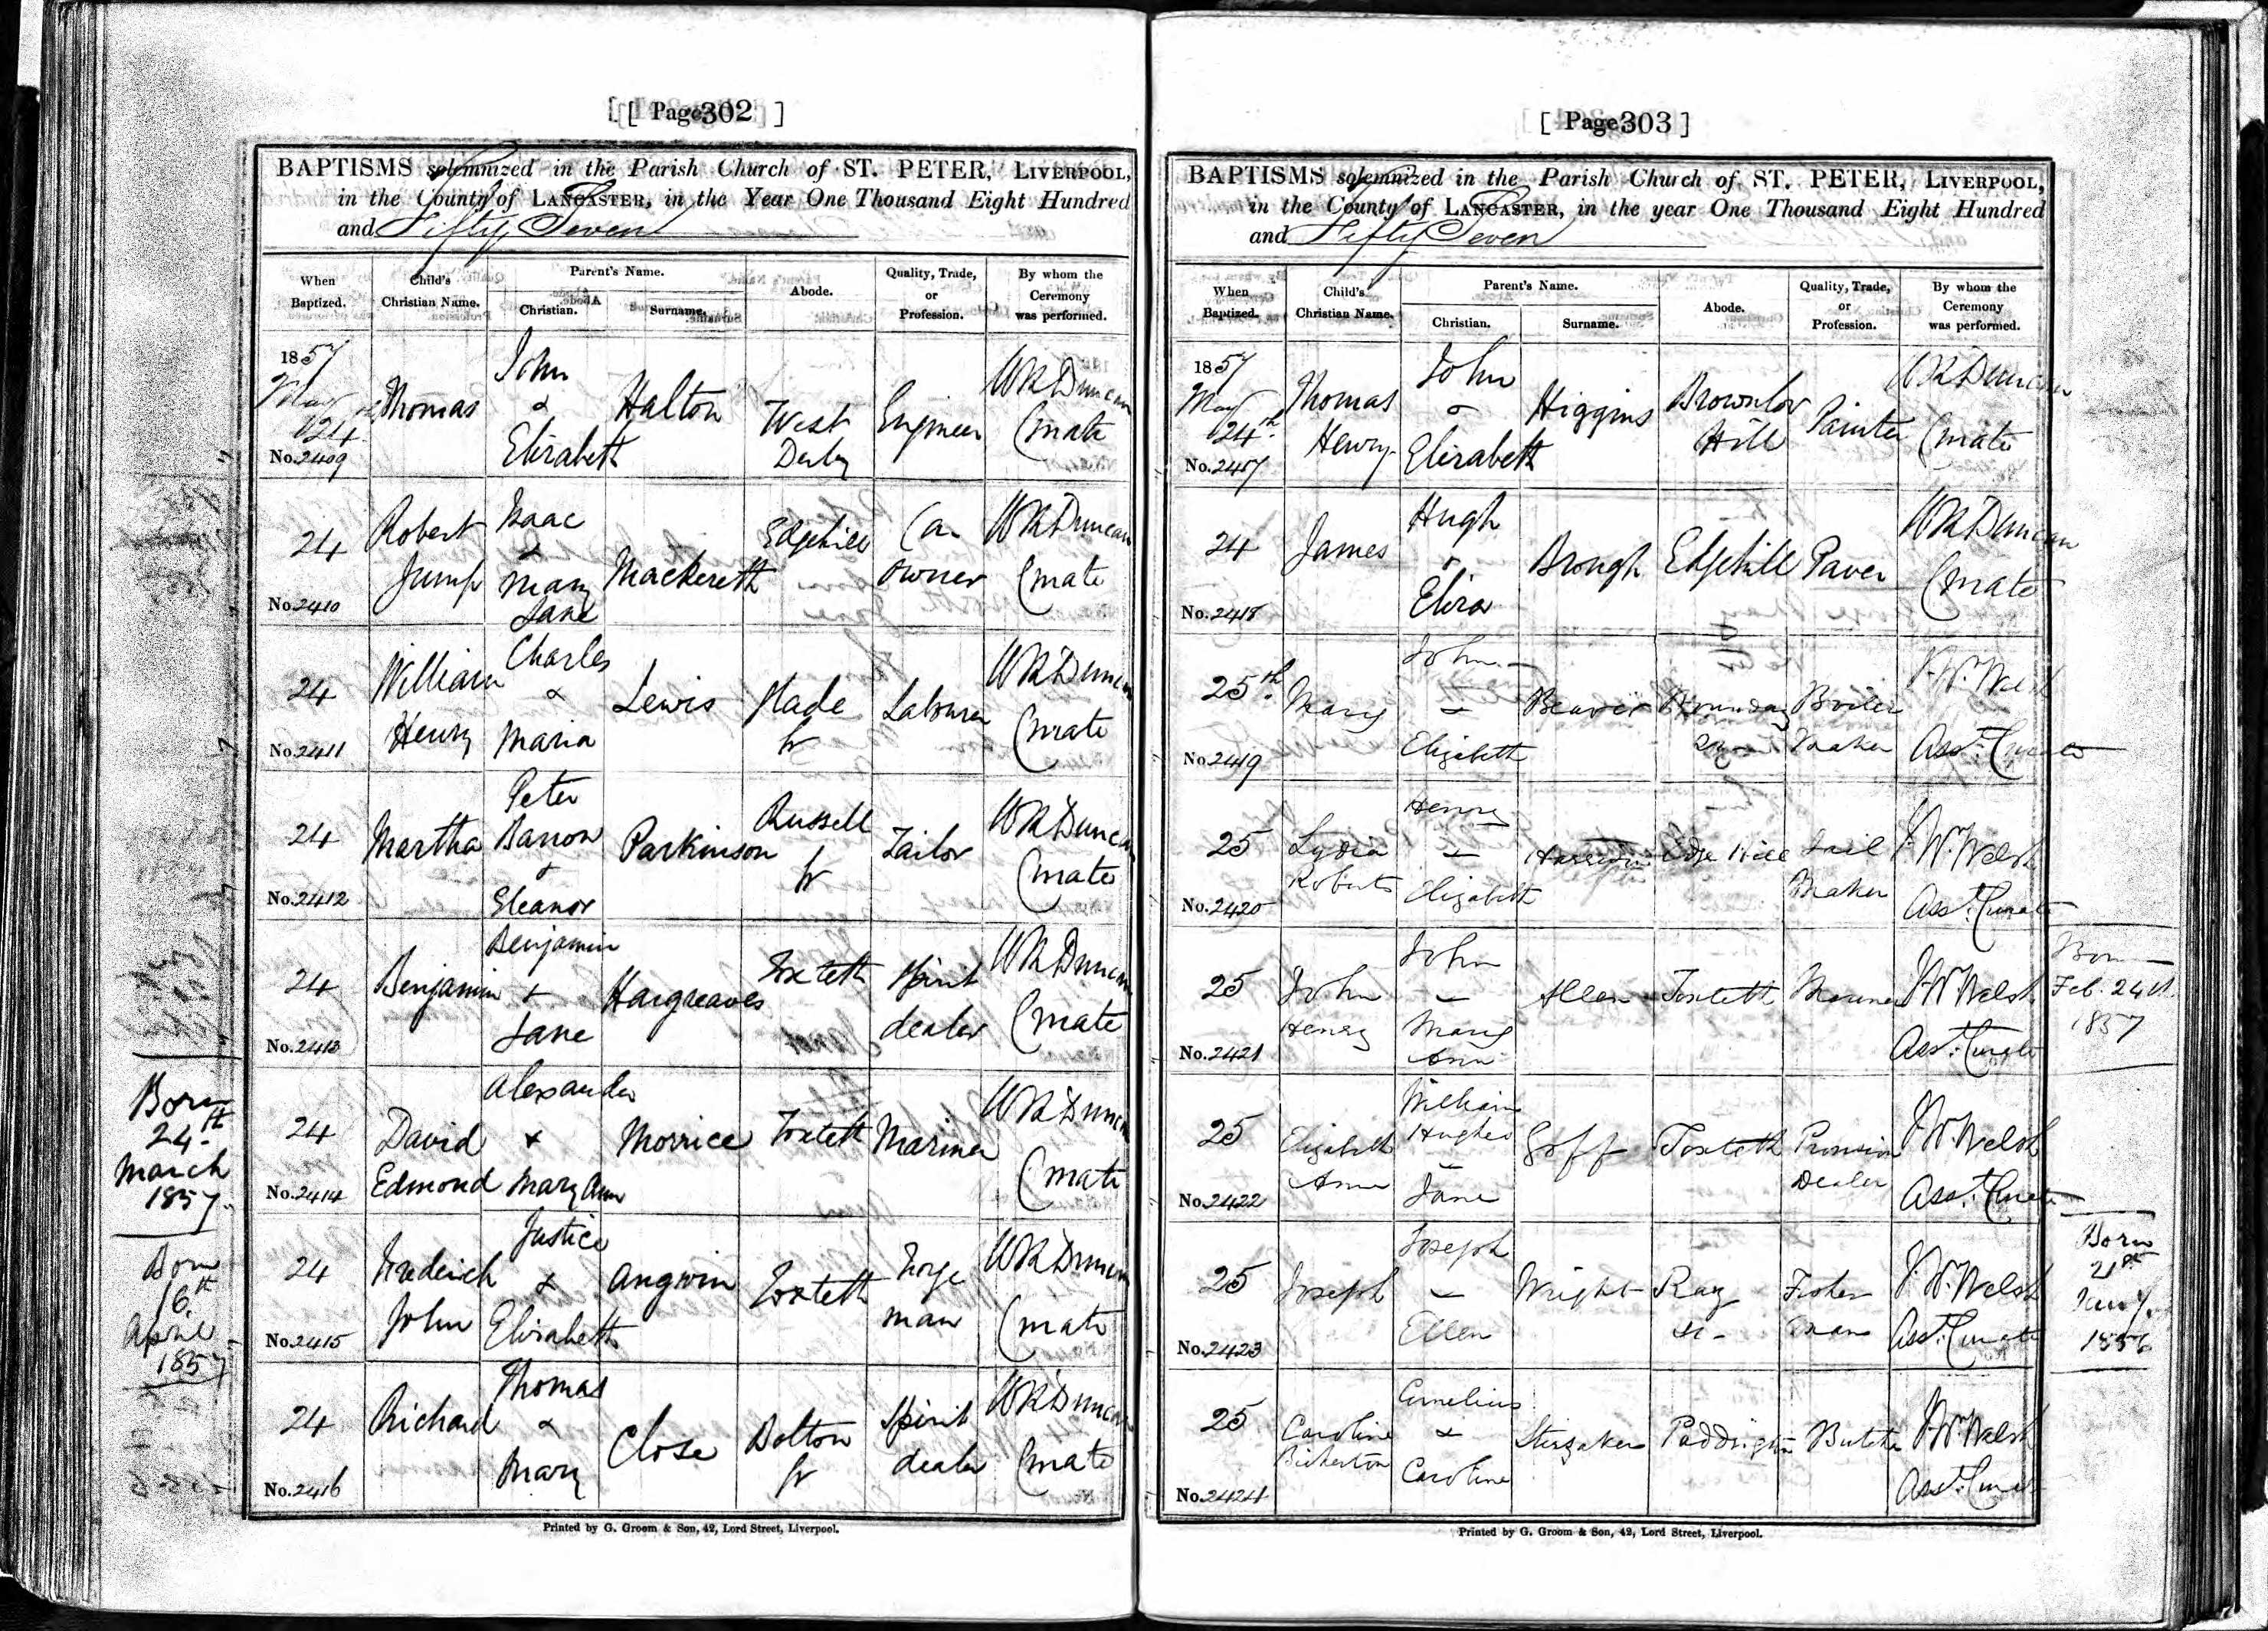 [ Page 302 ]
BAPTISMS solemnized in the Parish Church of ST. PETER, LIVERPOOL,
in the County of LANCASTER, in the Year One Thousand Eight Hundred
and Fifty Seven
When Baptized.
Child's Christian Name.
Parent's Name.
Christian.
Surname.
Abode.
Quality, Trade, or Profession.
By whom the Ceremony was performed.
1857 May 24th No. 2409 Thomas John & Elizabeth Halton West Derby Engineer W R Duncan Curate
24 No. 2410 Robert Jump Isaac & Mary Jane Mackereth Edgehill Car owner W R Duncan Curate
24 No. 2411 William Henry Charles & Maria Lewis Slade St Labourer W R Duncan Curate
24 No. 2412 Martha Peter Barron & Eleanor Parkinson Russell St Tailor W R Duncan Curate
24 No. 2413 Benjamin Benjamin & Jane Hargreaves Toxteth Spirit dealer W R Duncan Curate
Born 24th March 1857.
24 No. 2414 David Edmond Alexander & Mary Ann Morrice Toxteth Mariner W R Duncan Curate
Born 16th April 1857
24 No. 2415 Frederick John Justice & Elizabeth Angwin Toxteth Forge man W R Duncan Curate
24 No. 2416 Richard Thomas & Mary Close Bolton St Spirit dealer W R Duncan Curate
Printed by G. Groom & Son, 42, Lord Street, Liverpool.
[ Page 303 ]
BAPTISMS solemnized in the Parish Church of ST. PETER, LIVERPOOL,
in the County of LANCASTER, in the year One Thousand Eight Hundred
and Fifty Seven
When Baptized.
Child's Christian Name.
Parent's Name.
Christian.
Surname.
Abode.
Quality, Trade, or Profession.
By whom the Ceremony was performed.
1857 May 24th No. 2417 Thomas Henry John & Elizabeth Higgins Brownlow Hill Painter W R Duncan Curate
24 No. 2418 James Hugh & Eliza Brough Edgehill Paver W R Duncan Curate
25th No. 2419 Mary John & Elizabeth Boiler Maker J. W. Welsh Asst. Curate
25 No. 2420 Lydia Roberts Henry & Elizabeth Edge Hill Sail Maker J. W. Welsh Asst. Curate
25 No. 2421 John Henry John & Mary Ann Allen Toxteth Mariner J. W. Welsh Asst. Curate
Born Feb. 24th 1857
25 No. 2422 Elizabeth Ann William Hughes & Jane Goff Toxteth Provision Dealer J. W. Welsh Asst. Curate
25 No. 2423 Joseph Joseph & Ellen Wright Ray St. Fisher man J. W. Welsh Asst. Curate
Born 21st Jany. 1856
25 No. 2424 Caroline Bickerton Cornelius & Caroline Stirzaker Paddington Butcher J. W. Welsh Asst. Curate
Printed by G. Groom & Son, 42, Lord Street, Liverpool.